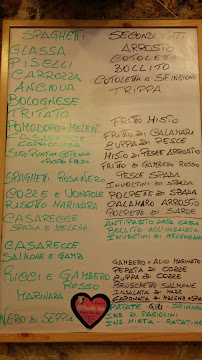 SPAGHETTI
GLASSA
PISELLI
CARROZZA
ANCIOVA
BOLOGNESE
TRITATO
POMODORO E MELENZ
CASARECCE
SPAGHETTI ROSA NERO
COZZE E VONGOLE
RISOTTO MARINARA
CASARECCE
SPADA E MELENZ
CASARECCE
SALMONE E GAMB
RICCI E GAMBERO
ROSSO
MARINARA
NERO DI SEPPIA
SECONDI
ARROSTO
COTOLETTA
BOLLITO
COTOLETTA A SFINCIONE
TRIPPA
FRITTO MISTO
FRITTO DI CALAMARI
ZUPPA DI PESCE
MISTO DI PESCE ARROSTO
FRITTO DI GAMBERO ROSSO
PESCE SPADA
INVOLTINI DI SPADA
POLPETTE DI SPADA
CALAMARO ARROSTO
POLPETTE DI SARDE
ANTIPASTO DELLA CASA
POLLITO ALL'INSALATA
INVOLTINI DI MELENZANE
GAMBERO E ALICI MARINATO
PEPATA DI COZZE
ZUPPA DI COZZE
PROSCIUTTO SALMONE
INSALATA DI MARE
CAPONATA DI MELENZ E SPADA
PATATE
INS. DI FAGIOLINI
INS. MISTA - PATATINE